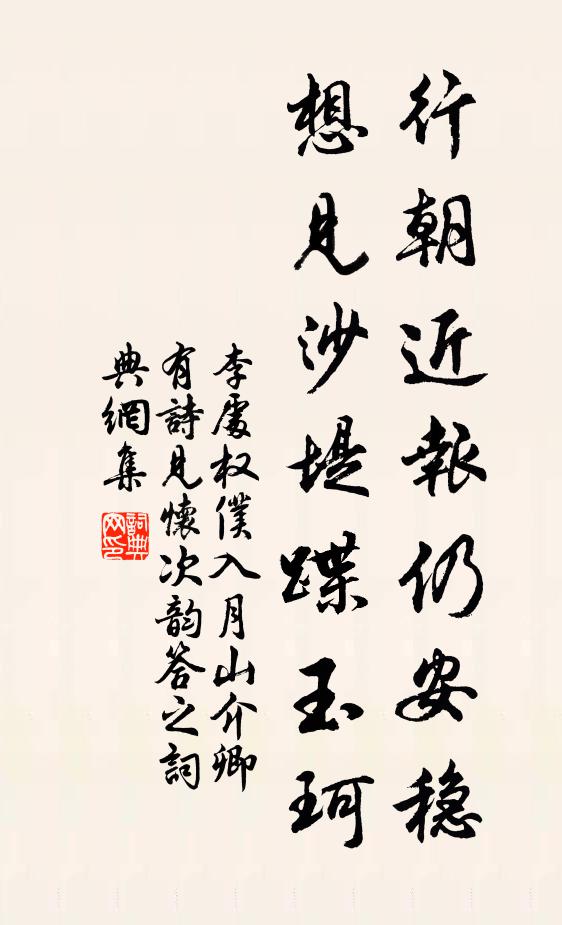 行朝近報仍安穩
想見沙堤蹀玉珂
李處权僕入月山介卿
有詩見懷次韵答之詞
典網集
詞典
网印